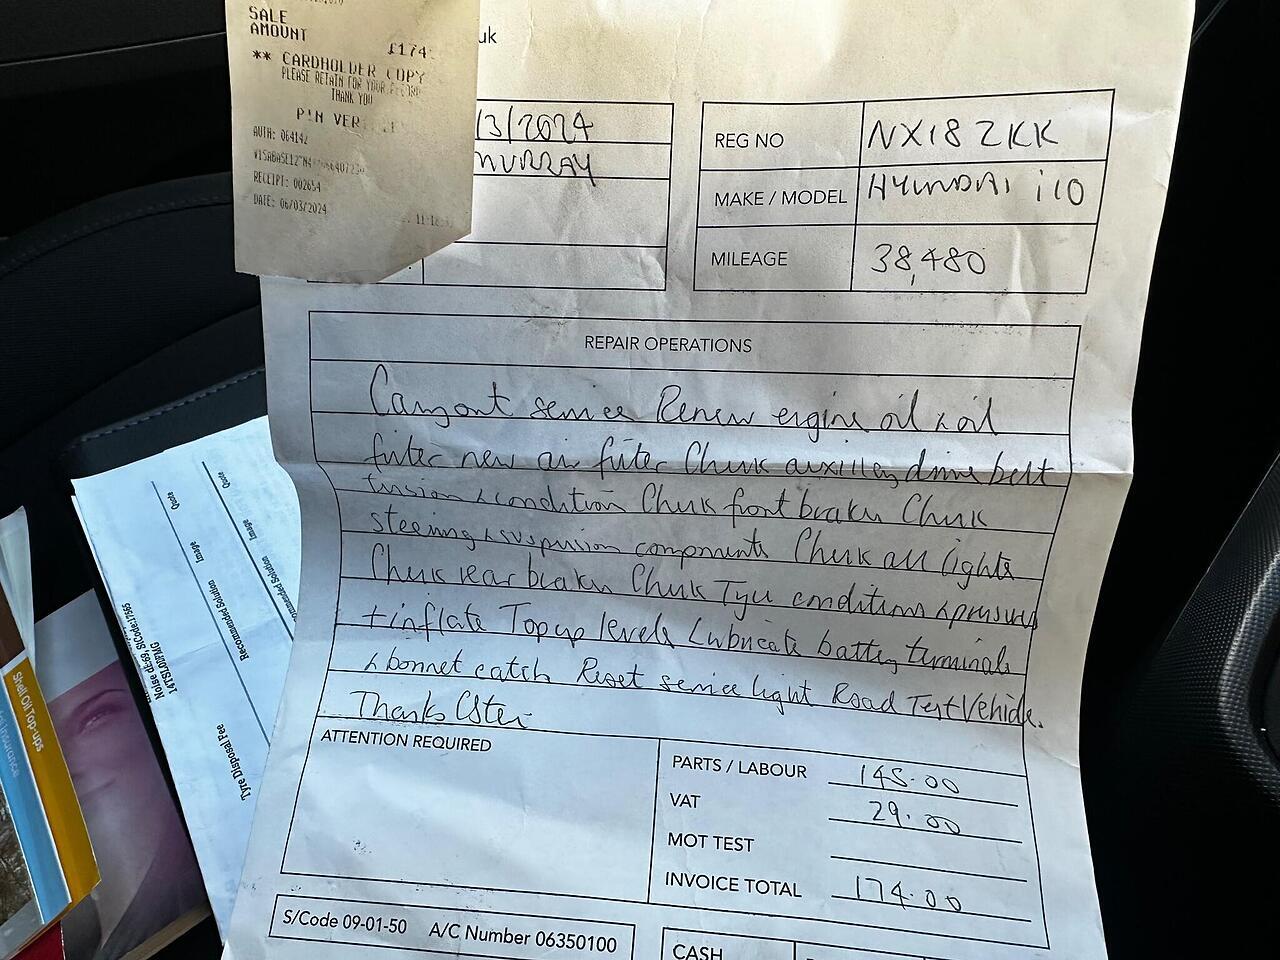 SALE
AMOUNT
£174
** CARDHOLDER COPY
PLEASE RETAIN FOR YOUR RECORD
THANK YOU
PIN VER
AUTH: 064142
RECEIPT: 002654
DATE: 06/03/2024
uk
/3/2024
MURRAY
REG NO NX18 ZKK
MAKE / MODEL HYUNDAI i10
MILEAGE 38,480
REPAIR OPERATIONS
Carryout service Renew engine oil & oil
filter new air filter Check auxillay drive belt
tension & condition Check front brakes Check
steering & suspension components Check all lights
Check rear brakes Check Tyre conditions & pressures
+ inflate Top up levels Lubricate battery terminals
& bonnet catch Reset service light Road Test Vehicle.
Thanks
ATTENTION REQUIRED
PARTS / LABOUR 145.00
VAT 29.00
MOT TEST
INVOICE TOTAL 174.00
S/Code 09-01-50 A/C Number 06350100
CASH
Quote Image Recommended Solution
Quote Image
Tyre Disposal Fee
Shell Oil Top-ups